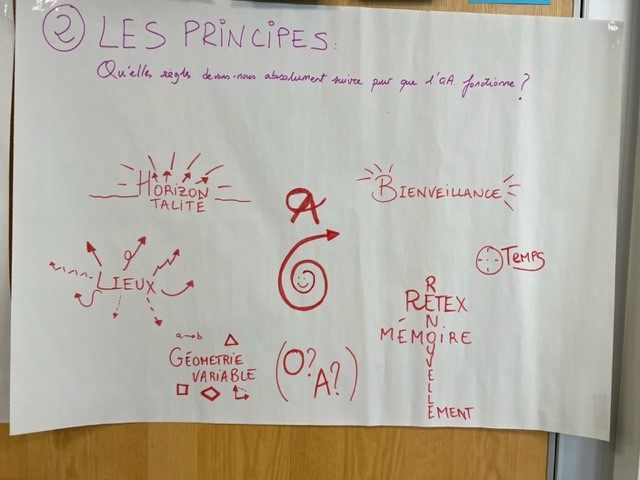 2 LES PRINCIPES:
Qu'elles règles devons-nous absolument suivre pour que l'aA. fonctionne?
HORIZON
TALITÉ
A
BIENVEILLANCE
LIEUX
TEMPS
RETEX
MÉMOIRE
RENOUVELLEMENT
a→b
GÉOMETRIE
VARIABLE
(O?
A?)